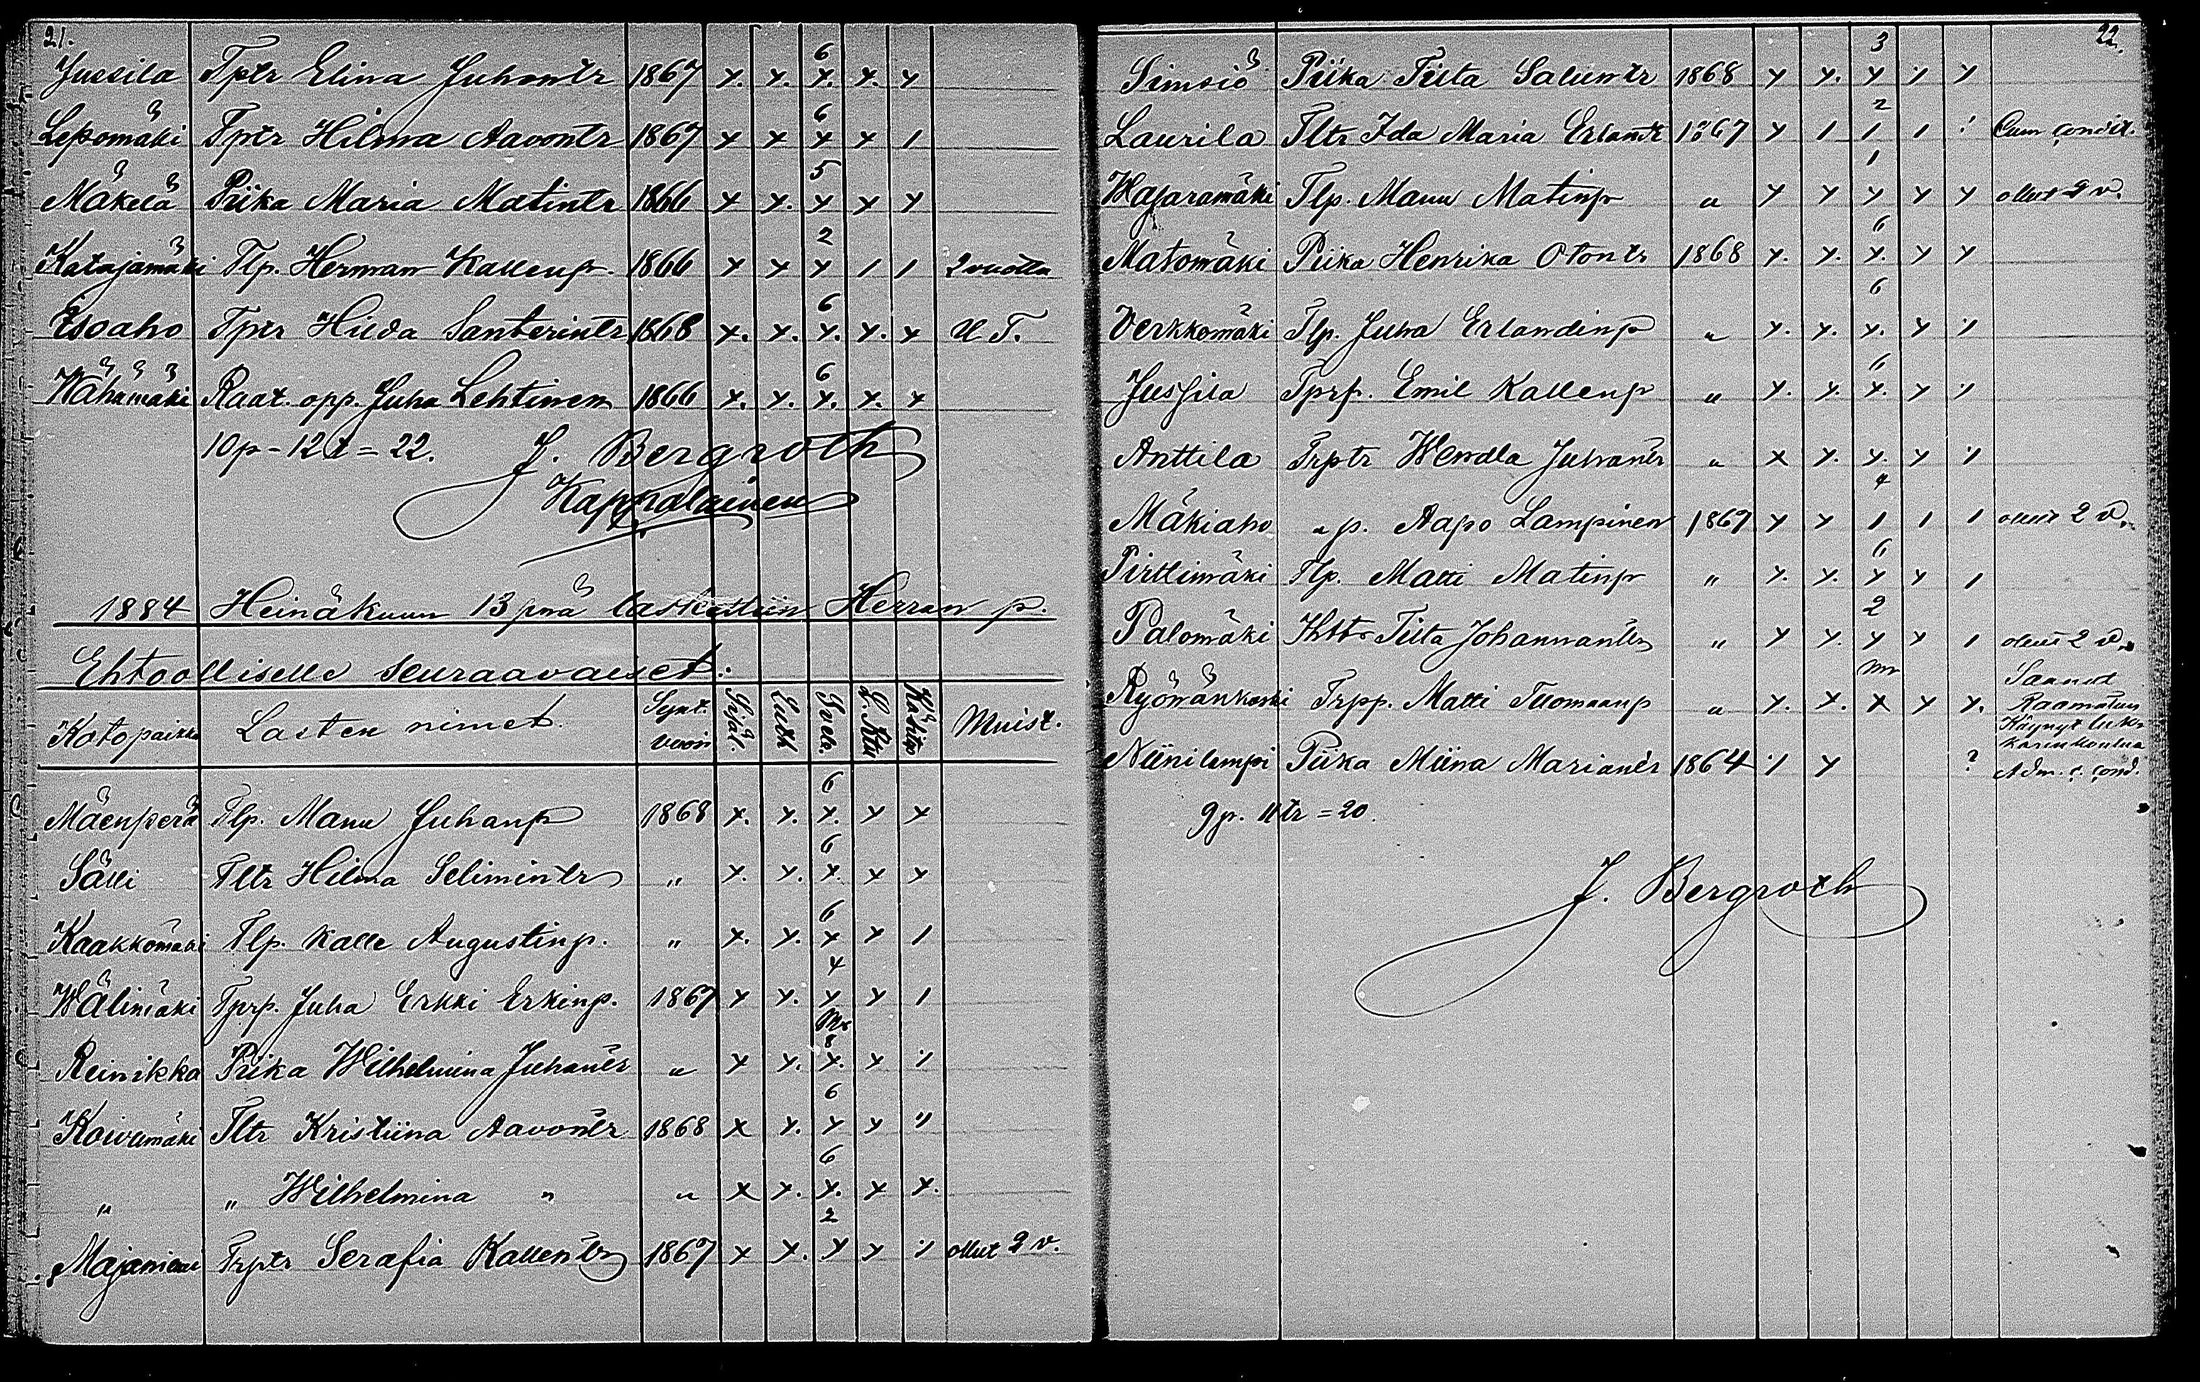 21.
6
Jussila Tptr Elina Juhontr 1867 x. x. x. x. x
6
Lepomäki Tptr Hilma Aavontr 1867 x x x x 1
5
Mäkelä Piika Maria Matintr 1866 x x. x x x
2
Katajamäki Tlp. Herman Kallenp. 1866 x x x 1 1 2 vuotta
6
Isoaho Tptr Hilda Santerintr 1868 x. x. x. x. x U T.
6
Wähämäki Raat. opp. Juha Lehtinen 1866 x. x. x. x. x
10p - 12 t = 22. J. Bergroth
Kappalainen
1884 Heinäkuun 13 pnä laskettiin Herran p.
Ehtoolliselle seuraavaiset:
Kotopaikka Lasten nimet. Synt. vuosi Sisäl. Luth Sveb. Käsitys Muist.
6
Mäenperä Tlp. Manu Juhanp 1868 x. x. x. x x
6
Sälli Tltr Hilma Selimintr " x. x. x. x x
6
Kaakkomäki Tlp. Kalle Augustinp. " x. x. x x 1
4
Wälimäki Tprp. Juha Erkki Erkinp. 1867 x x. x x 1
8
Reinikka Piika Wilhelmina Juhantr " x x. x. x ·/
6
Koivumäki Tltr Kristiina Aavontr 1868 x x. x x "
6
" " Wilhelmina " " x x. x. x x.
2
Majamäki Trptr Serafia Kallentr 1867 x x. x x ·/ ollut 2 v.
22.
3
Simsiö Piika Tiita Salumtr 1868 x x. x x x
2
Laurila Tltr Ida Maria Erlantr 1867 x 1 1 1 ! Cum condit.
1
Wajaramäki Tlp. Manu Matinp " x x x x x ollut 2 v.
6
Matomäki Piika Henrika Otontr 1868 x. x. x. x x
6
Verkkomäki Tlp. Juha Erlandinp " x. x. x. x ·/
6
Jussila Tprp. Emil Kallenp " x. x. x. x ·/
Anttila Trptr Wendla Juhantr " x x. x. x ·/
4
Mäkiaho " p. Aapo Lampinen 1867 x x 1 1 1 ollut 2 v.
6
Pirttimäki Tlp. Matti Matinp " x. x. x x 1
2
Palomäki Tiita Johannantr " x x. x x 1 ollut 2 v.
Ryöwänkoski Trpp. Matti Tuomaanp " x. x. x x x. Saanut Raamatun
Niinilampi Piika Miina Mariantr 1864 ·/ x ? Käynyt luk- karinkoulua Adm. c. cond.
9p. 11tr = 20.
J. Bergroth